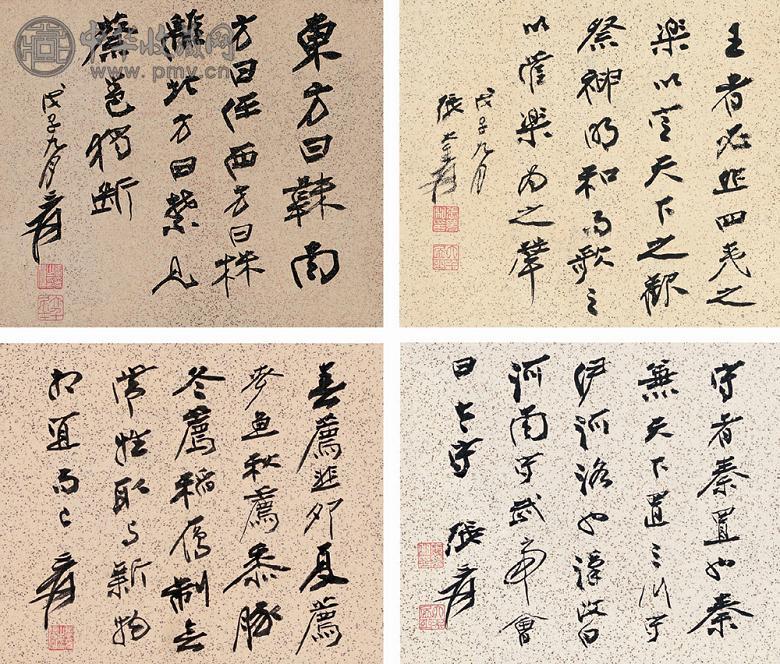 中华收藏网
www.pmv.cn
東方曰韎南
方曰任西方曰株
離北方曰禁見
蔡邕獨斷
戊子九月 爰
王者必作四夷之
樂以定天下之歡
祭神明和而歌之
以管樂為之聲
戊子九月
張大千爰
春薦韭卵夏薦
麥魚秋薦黍豚
冬薦稻雁制无
常牲取与新物
相宜而已 爰
守者秦置也秦
兼天下置三川守
伊河洛也漢改曰
河南守武帝會
曰太守 張爰